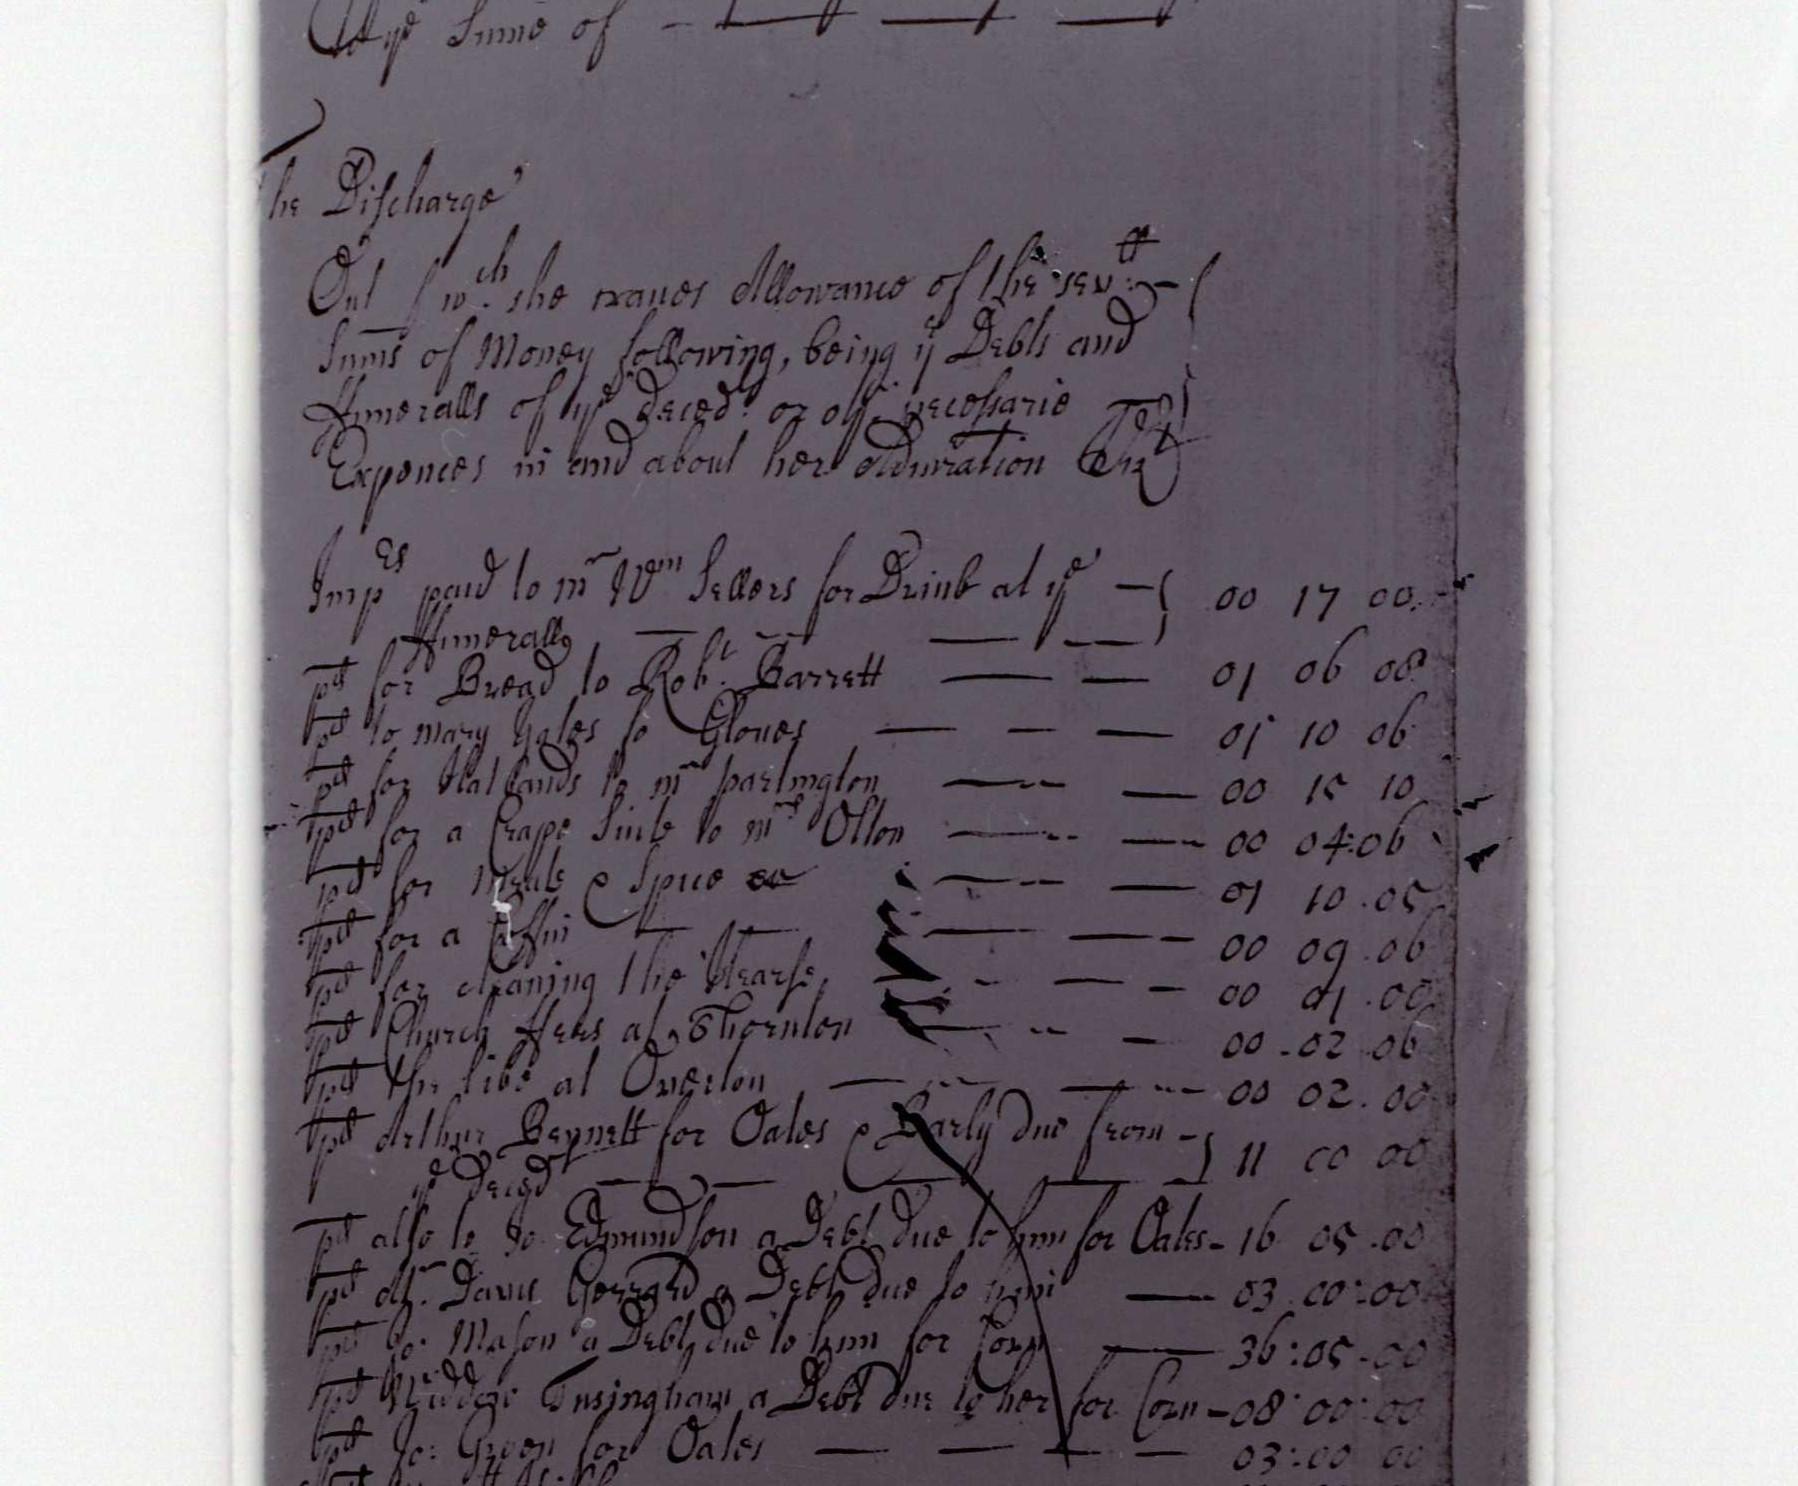 At ye Sume of
The Discharge
Out of wch. she craues Allowance of the sev:ll
Sums of Money following, being ye Debts and
ffuneralls of ye deced: or oth: necessarie
Expences in and about her Administration
Impes paid to mr Wm Sellers for Drink at ye 00 17 00
ffuneralls
pd for Bread to Robt. Barrett 01 06 08
pd to Mary Yates fo Gloues 01 10 06
pd for Hatbands to mr partington 00 15 10
pd for a Crape Suite to mrs Olton 00 04:06
pd for Meate & Spice 01 10 .05
pd for a Coffin 00 09 .06
pd for cleaning the Hearse 00 01 .00
pd Church ffees at Thornton 00 .02 .06
pd the like at Overton 00 02. 00
pd Arthur Bennett for Oates & Barly due from 11 00 00
ye deced
pd also to Jo: Edmundson a Debt due to him for Oates 16 05 .00
pd Mr. Davis Gerrard a Debt due to him 03 .00:00
pd Jo: Mason a Debt due to him for Corn 36:05.00
pd Widdow Tusingham a Debt due to her for Corn 08:00:00
pd Jo: Green for Oates 03:00 00